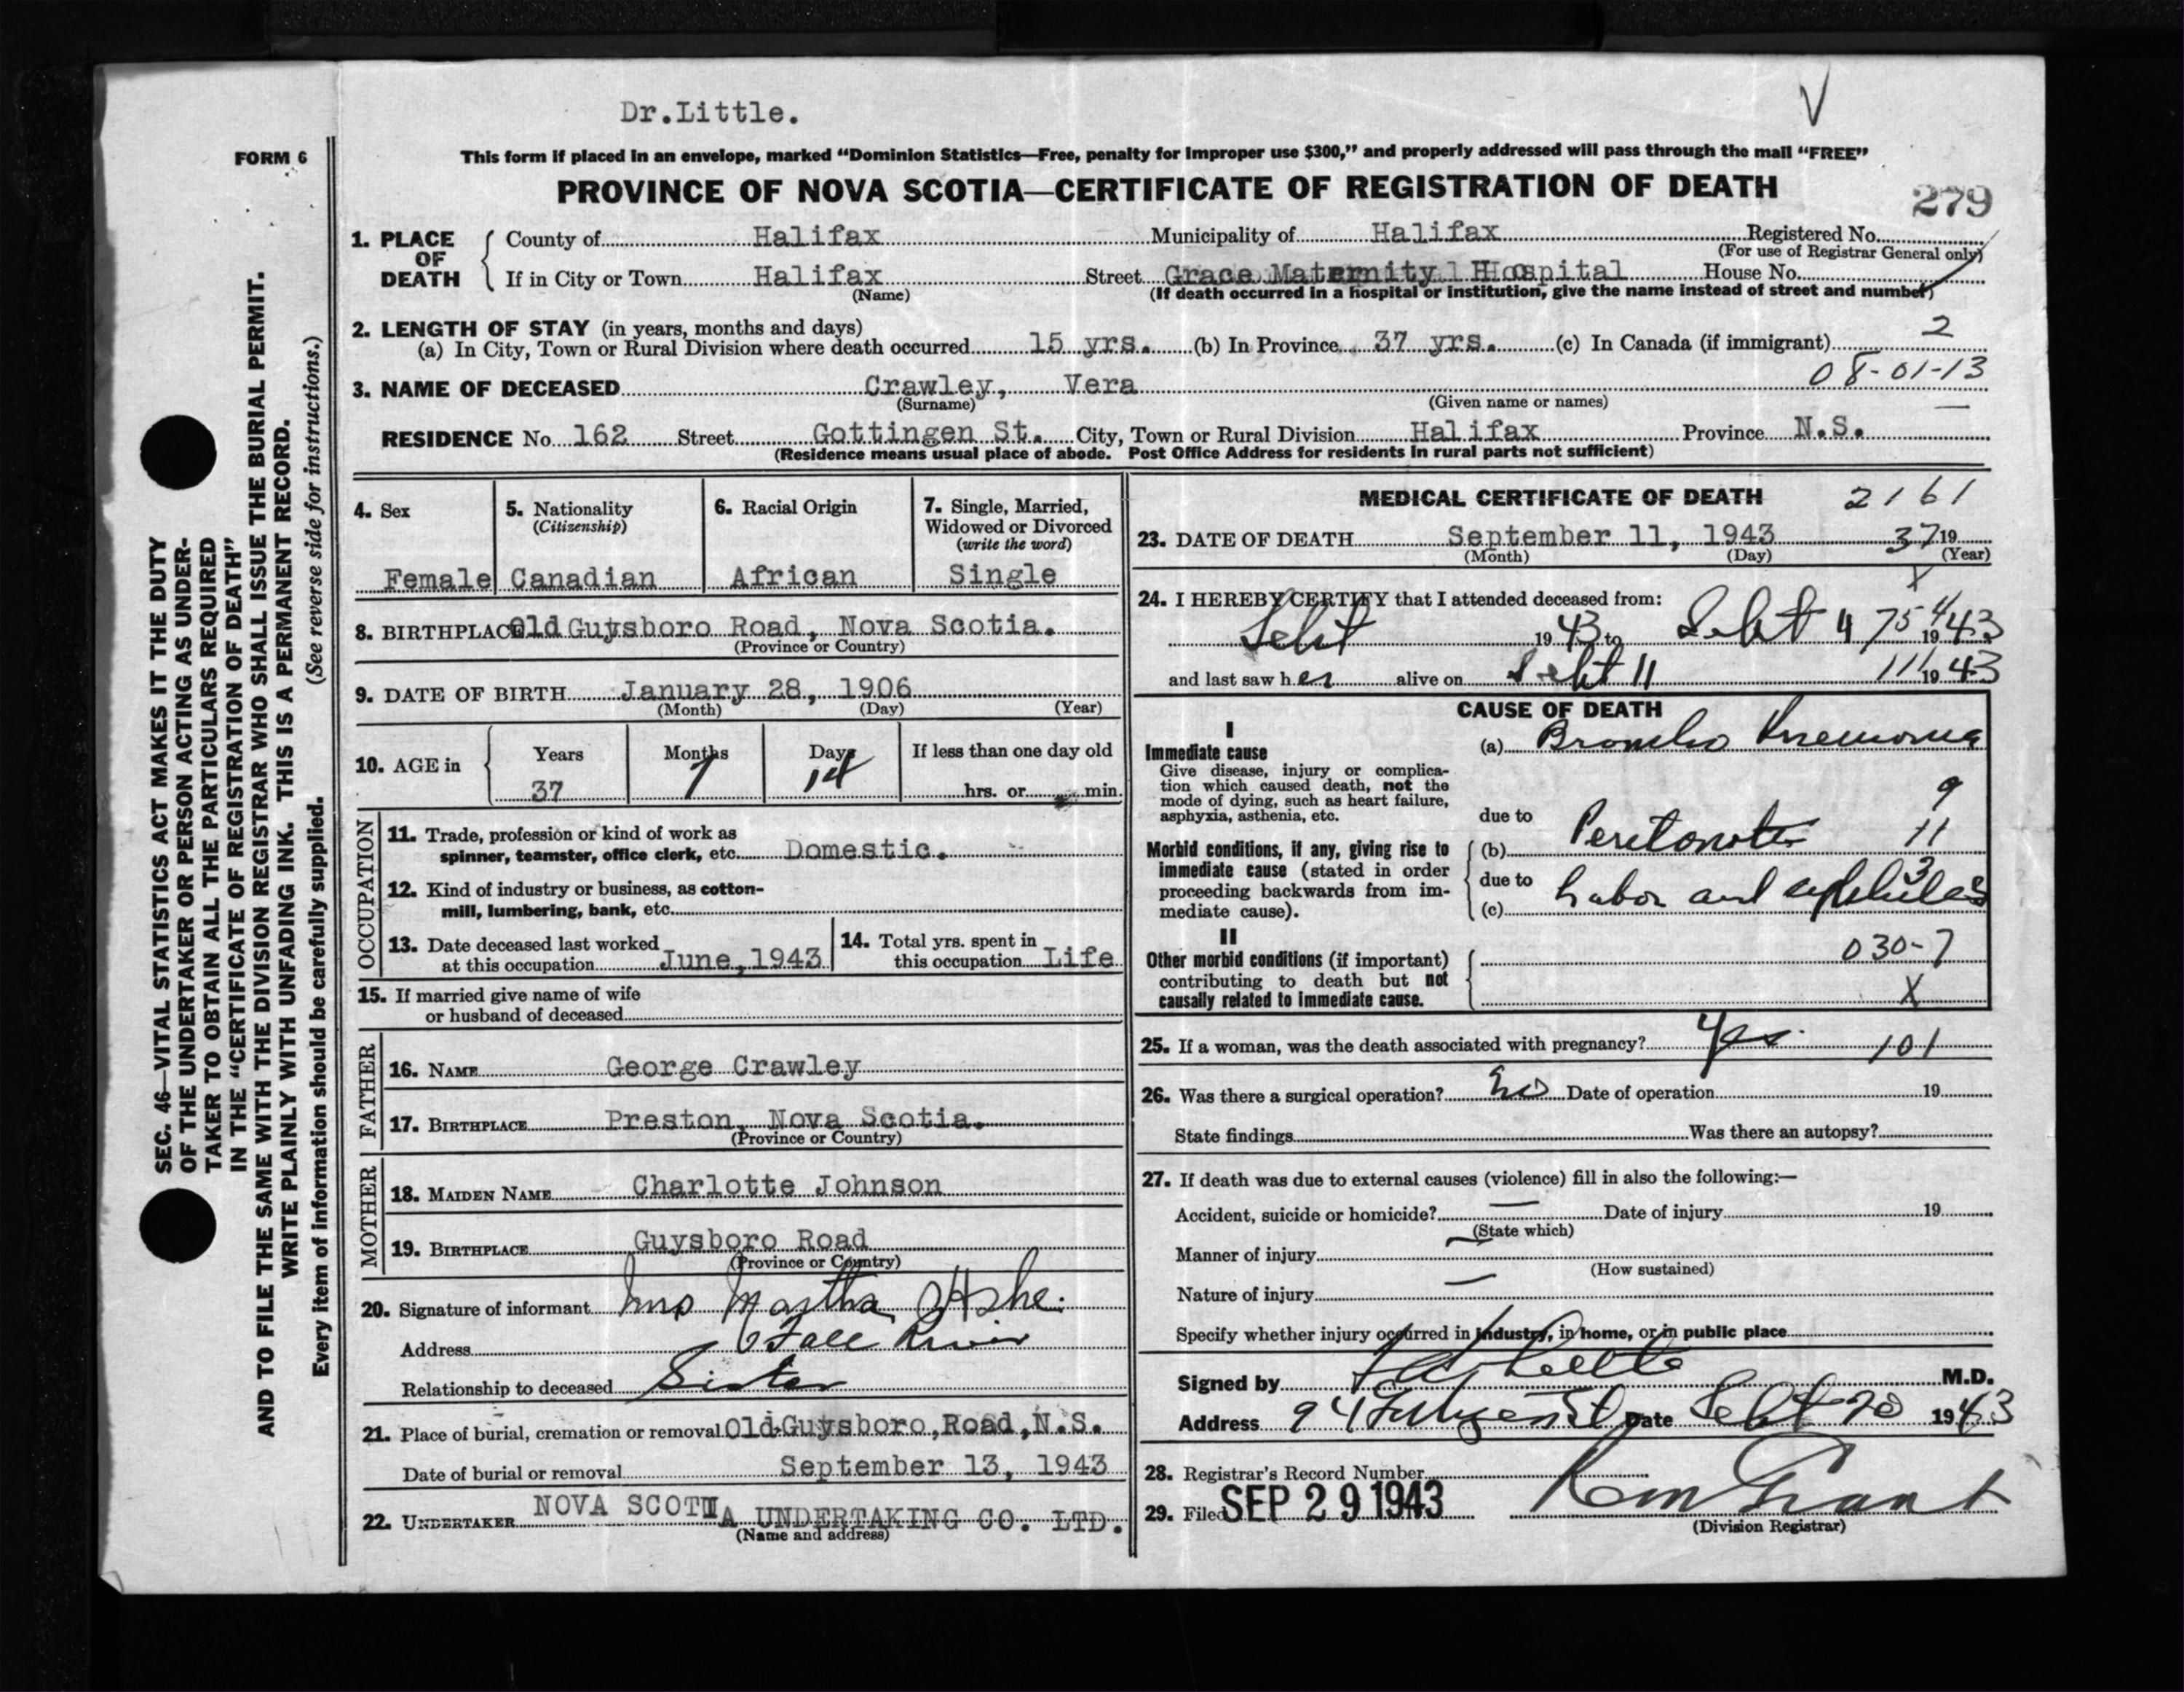 Dr.Little.
FORM 6
This form if placed in an envelope, marked “Dominion Statistics—Free, penalty for improper use $300,” and properly addressed will pass through the mail “FREE”
PROVINCE OF NOVA SCOTIA—CERTIFICATE OF REGISTRATION OF DEATH
279
1. PLACE OF DEATH
County of Halifax Municipality of Halifax Registered No.
(For use of Registrar General only)
If in City or Town Halifax Street Grace Maternity Hospital House No.
(Name) (If death occurred in a hospital or institution, give the name instead of street and number)
2. LENGTH OF STAY (in years, months and days)
(a) In City, Town or Rural Division where death occurred 15 yrs. (b) In Province 37 yrs. (c) In Canada (if immigrant) 2
08-01-13
3. NAME OF DECEASED Crawley, Vera
(Surname) (Given name or names)
RESIDENCE No. 162 Street Gottingen St. City, Town or Rural Division Halifax Province N.S.
(Residence means usual place of abode. Post Office Address for residents in rural parts not sufficient)
SEC. 46—VITAL STATISTICS ACT MAKES IT THE DUTY
OF THE UNDERTAKER OR PERSON ACTING AS UNDER-
TAKER TO OBTAIN ALL THE PARTICULARS REQUIRED
IN THE “CERTIFICATE OF REGISTRATION OF DEATH”
AND TO FILE THE SAME WITH THE DIVISION REGISTRAR WHO SHALL ISSUE THE BURIAL PERMIT.
WRITE PLAINLY WITH UNFADING INK. THIS IS A PERMANENT RECORD.
Every item of information should be carefully supplied. (See reverse side for instructions.)
4. Sex
Female
5. Nationality
(Citizenship)
Canadian
6. Racial Origin
African
7. Single, Married,
Widowed or Divorced
(write the word)
Single
8. BIRTHPLACE Old Guysboro Road, Nova Scotia.
(Province or Country)
9. DATE OF BIRTH January 28, 1906
(Month) (Day) (Year)
10. AGE in
Years Months Days If less than one day old
37 7 14 hrs. or min.
OCCUPATION
11. Trade, profession or kind of work as
spinner, teamster, office clerk, etc. Domestic.
12. Kind of industry or business, as cotton-
mill, lumbering, bank, etc.
13. Date deceased last worked
at this occupation June, 1943
14. Total yrs. spent in
this occupation Life
15. If married give name of wife
or husband of deceased
FATHER
16. NAME George Crawley
17. BIRTHPLACE Preston, Nova Scotia.
(Province or Country)
MOTHER
18. MAIDEN NAME Charlotte Johnson
19. BIRTHPLACE Guysboro Road
(Province or Country)
20. Signature of informant Mrs Martha Ashe.
Address Fall River
Relationship to deceased Sister
21. Place of burial, cremation or removal Old Guysboro, Road, N.S.
Date of burial or removal September 13, 1943
22. UNDERTAKER NOVA SCOTIA UNDERTAKING CO. LTD.
(Name and address)
MEDICAL CERTIFICATE OF DEATH 2161
23. DATE OF DEATH September 11, 1943 37 19
(Month) (Day) (Year)
X
24. I HEREBY CERTIFY that I attended deceased from:
Sept 1943 to Sept 1943
and last saw her alive on Sept 11 1943
CAUSE OF DEATH
I
Immediate cause
Give disease, injury or complica-
tion which caused death, not the
mode of dying, such as heart failure,
asphyxia, asthenia, etc.
(a) Broncho Pnemonia
9
due to
Morbid conditions, if any, giving rise to
immediate cause (stated in order
proceeding backwards from im-
mediate cause).
(b) Peritonitis 11
due to
(c) Labor and syphilis 3
II
Other morbid conditions (if important)
contributing to death but not
causally related to immediate cause.
030-7
X
25. If a woman, was the death associated with pregnancy? Yes. 101
26. Was there a surgical operation? No Date of operation 19
State findings Was there an autopsy?
27. If death was due to external causes (violence) fill in also the following:—
Accident, suicide or homicide? — Date of injury 19
(State which)
Manner of injury —
(How sustained)
Nature of injury —
Specify whether injury occurred in industry, in home, or in public place
Signed by Little M.D.
Address 94 St Date Sept 20 1943
28. Registrar's Record Number
29. Filed SEP 29 1943
(Division Registrar)